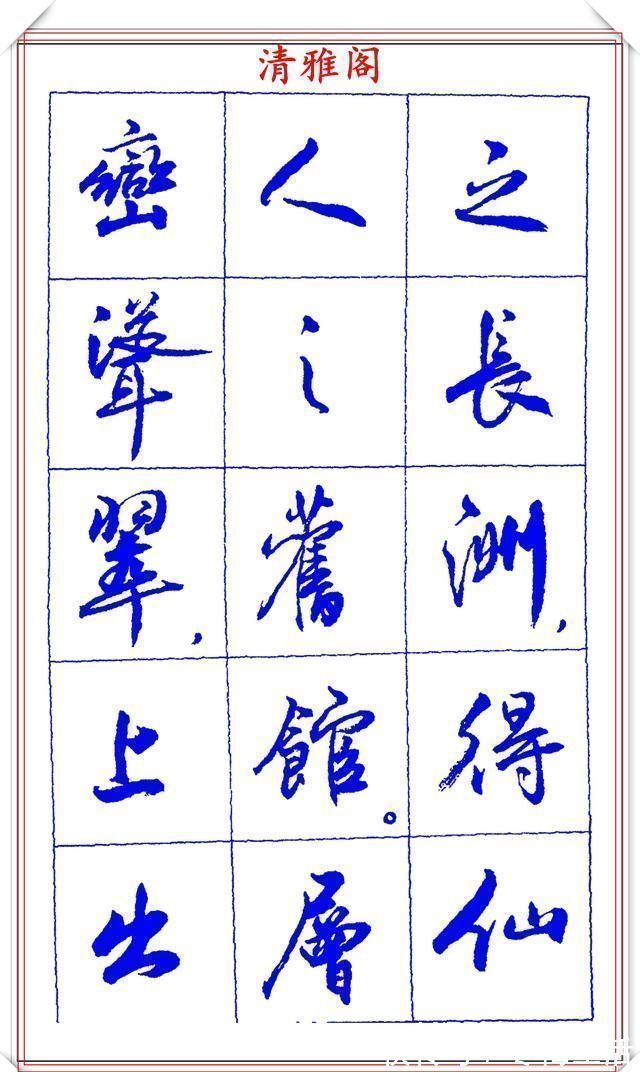 清雅阁
之長洲，得仙
人之舊館。層
巒聳翠，上出